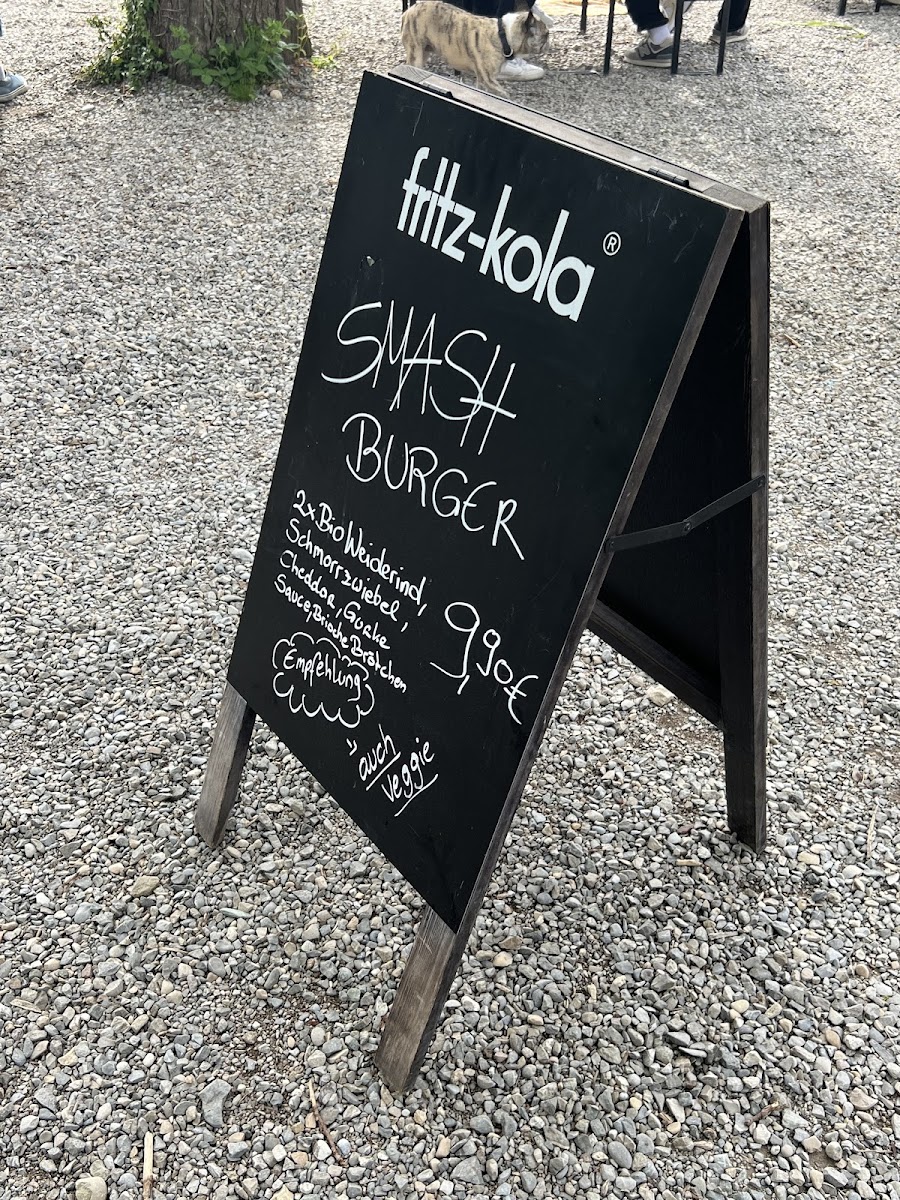 fritz-kola®
SMASH
BURGER
2x Bio Weiderind,
Schmorrzwiebel,
Cheddar, Gurke
Sauce, Brioche Brötchen
9,90€
Empfehlung
"auch
veggie